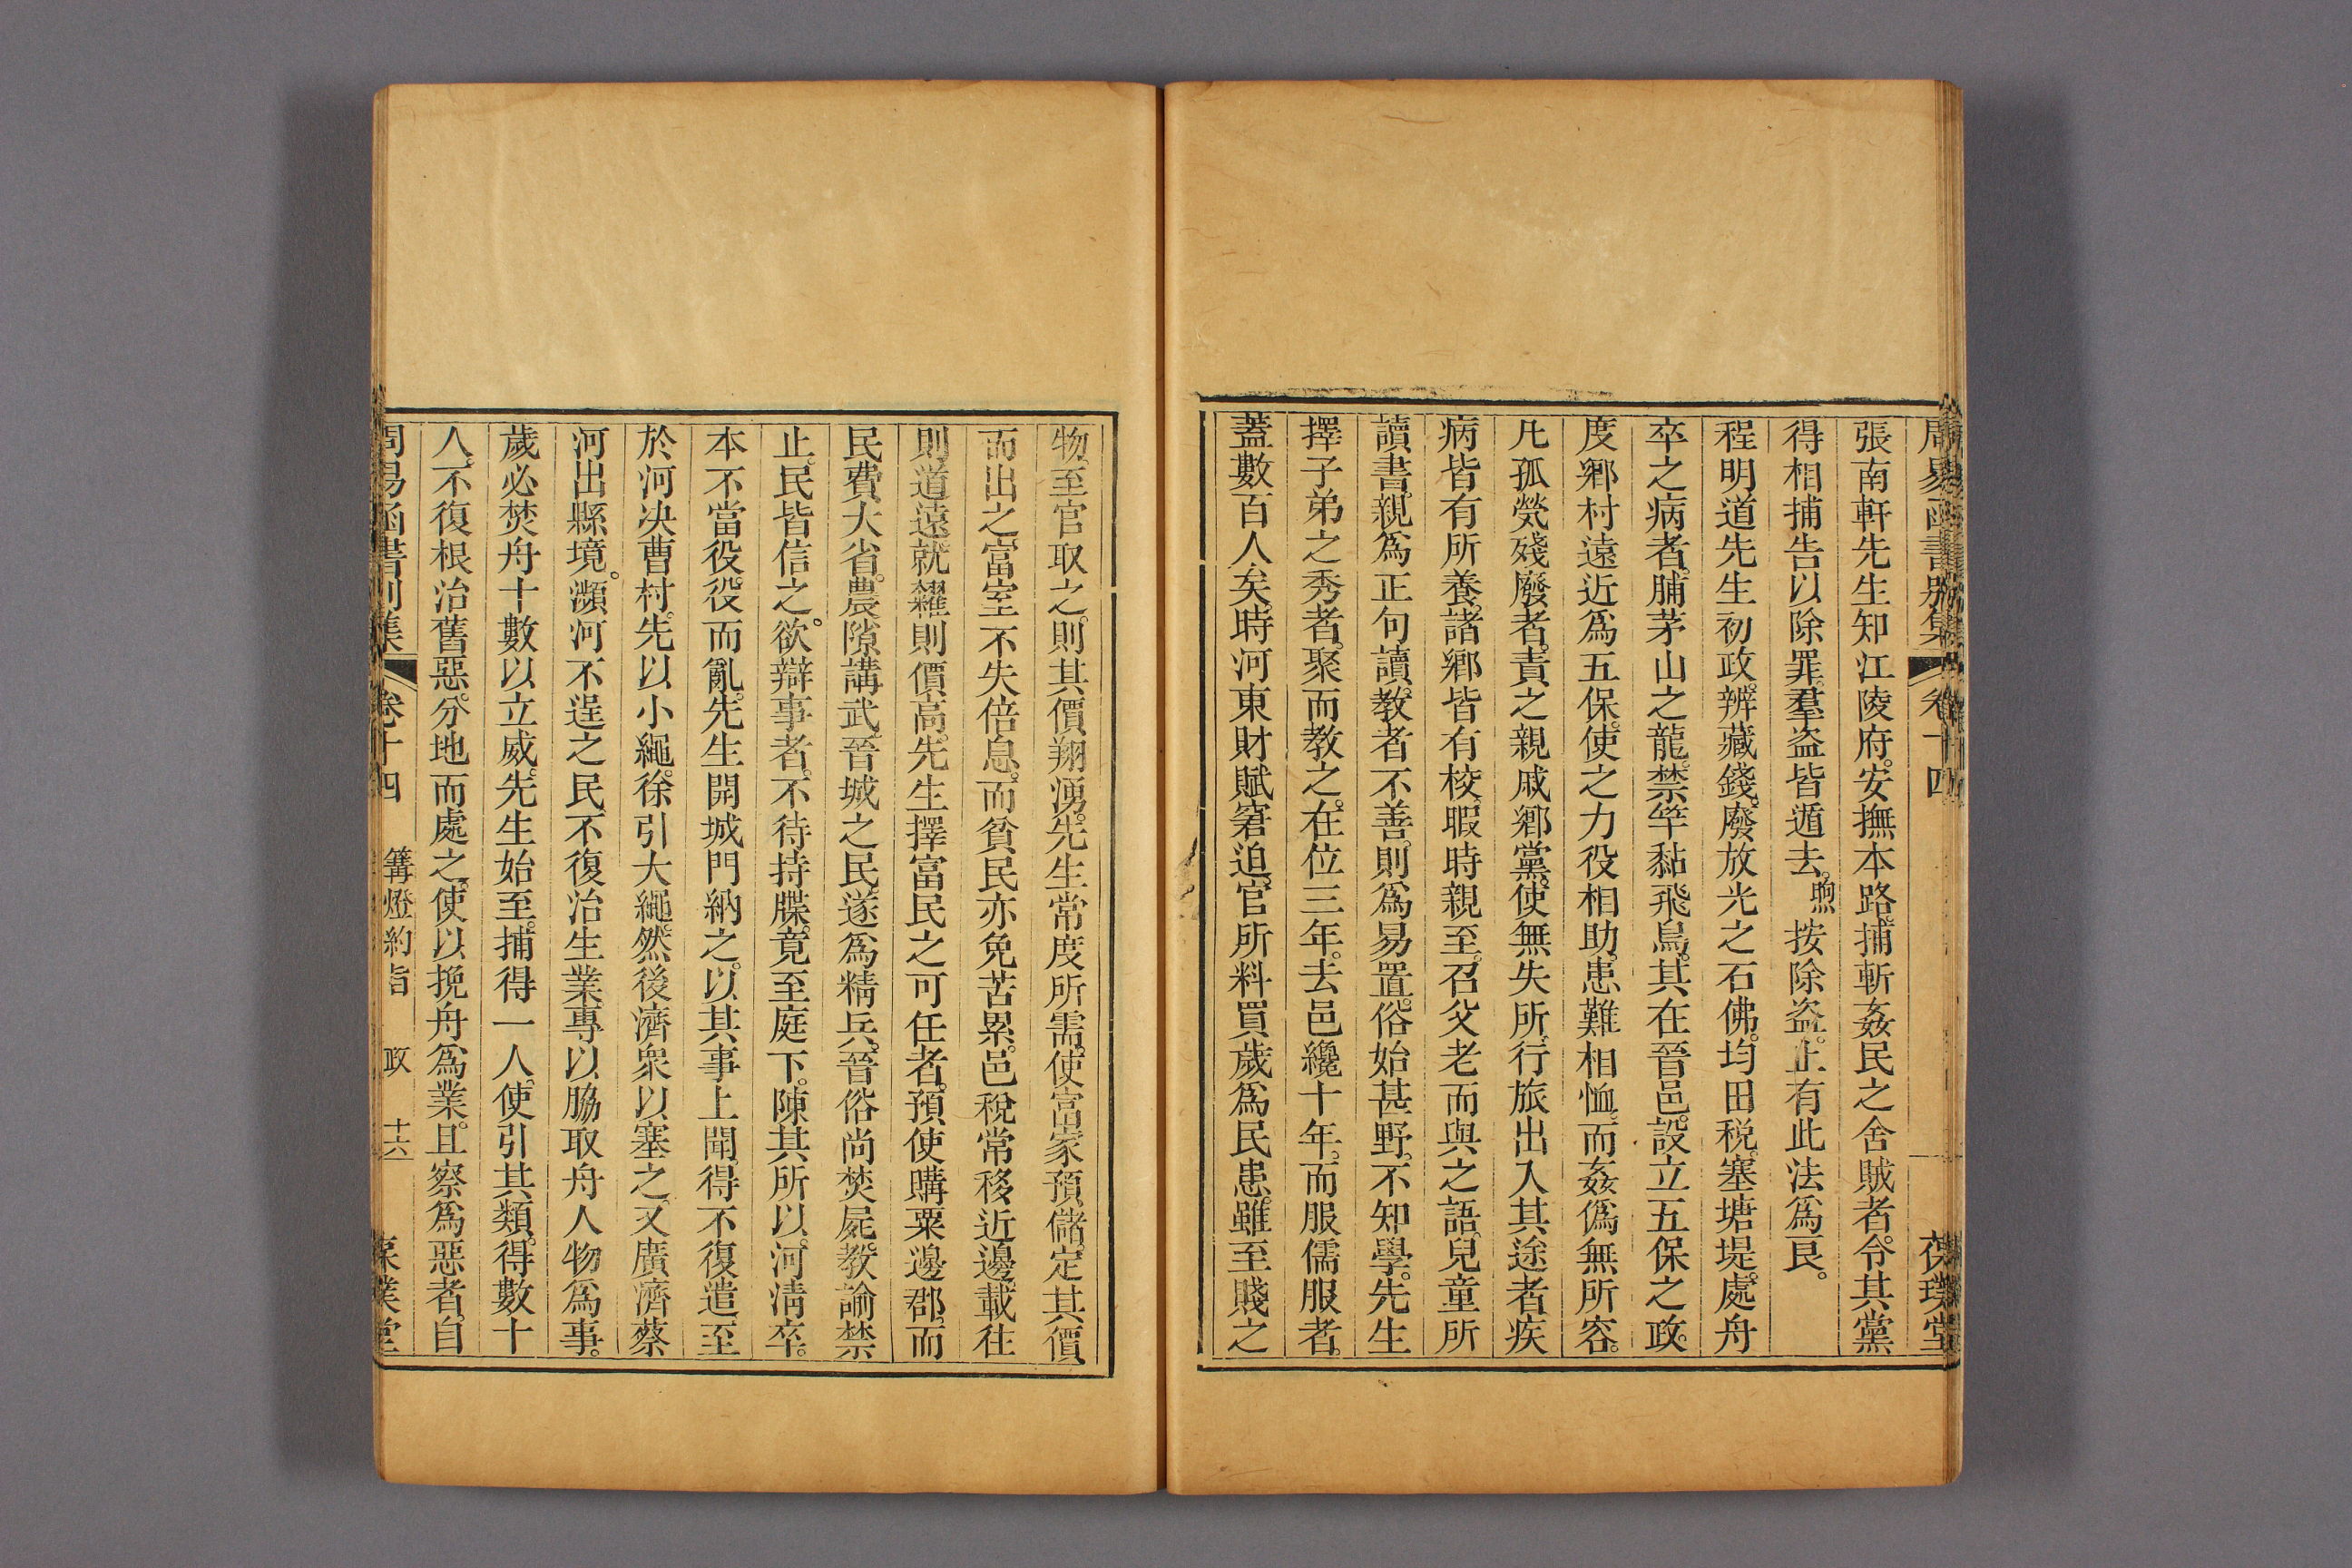 周易函書別集 卷十四 葆璞堂
張南軒先生知江陵府。安撫本路。捕斬姦民之舍賊者。令其黨
得相捕告以除罪。羣盗皆遁去。煦按除盗。止有此法爲艮。
程明道先生初政。辨藏錢。廢放光之石佛。均田税。塞塘堤。處舟
卒之病者。脯茅山之龍。禁竿黏飛鳥。其在晉邑。設立五保之政。
度鄉村遠近爲五保。使之力役相助。患難相恤。而姦僞無所容。
凡孤煢殘廢者。責之親戚鄉黨。使無失所。行旅出入其途者疾
病皆有所養。諸鄉皆有校。暇時親至。召父老而與之語。兒童所
讀書。親爲正句讀。教者不善。則爲易置。俗始甚野。不知學。先生
擇子弟之秀者。聚而教之。在位三年。去邑纔十年。而服儒服者。
蓋數百人矣。時河東財賦窘迫。官所料買。歲爲民患。雖至賤之
物。至官取之。則其價翔湧。先生常度所需。使富家預儲。定其價
而出之。富室不失倍息。而貧民亦免苦累。邑稅常移近邊。載往
則道遠。就糴則價高。先生擇富民之可任者。預使購粟邊郡。而
民費大省。農隙講武。晉城之民。遂爲精兵。晉俗尚焚屍。教諭禁
止。民皆信之。欲辯事者。不待持牒。竟至庭下。陳其所以。河清卒。
本不當役。役而亂。先生開城門納之。以其事上聞。得不復遣。至
於河决曹村。先以小繩。徐引大繩。然後濟衆以塞之。又廣濟蔡
河出縣境。瀕河不逞之民。不復治生業。專以脇取舟人物爲事。
歲必焚舟十數以立威。先生始至。捕得一人。使引其類。得數十
人。不復根治舊惡。分地而處之。使以挽舟爲業。且察爲惡者。自
周易函書別集 卷十四 篝燈約旨 政 十六 葆璞堂